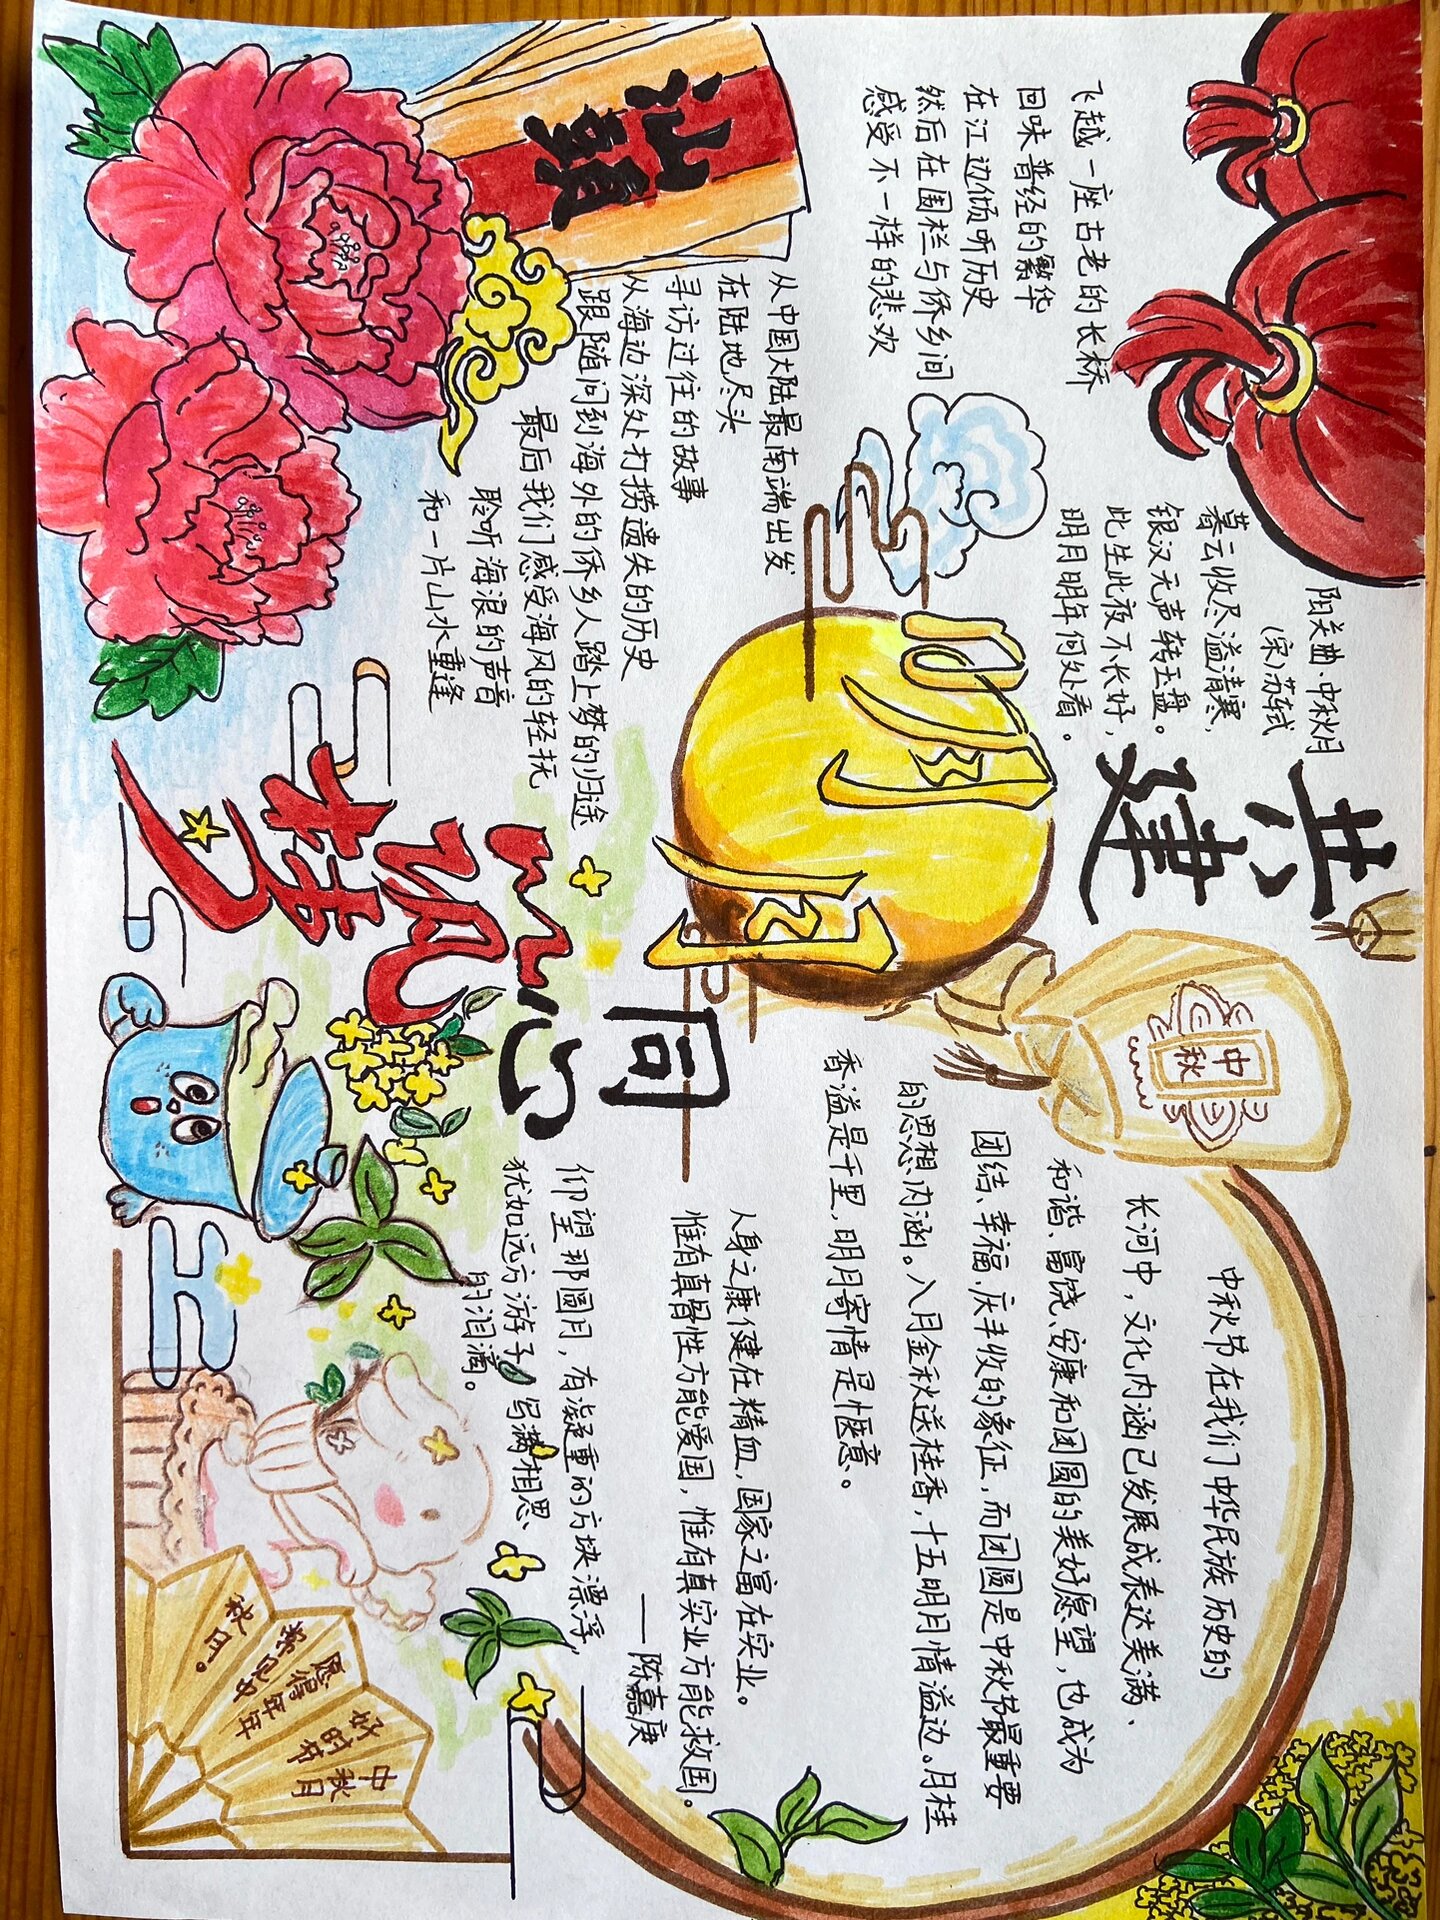 共建
同心
筑梦
汕頭
飞越一座古老的长桥
回味曾经的繁华
在江边倾听历史
然后在围栏与侨乡间
感受不一样的悲欢
从中国大陆最南端出发
在陆地尽头
寻访过往的故事
从海边深处打捞遗失的历史
跟随问到海外的侨乡人踏上梦的归途
最后我们感受海风的轻抚
聆听海浪的声音
和一片山水重逢
阳关曲·中秋月
(宋)苏轼
暮云收尽溢清寒,
银汉无声转玉盘。
此生此夜不长好,
明月明年何处看。
中秋
中秋节在我们中华民族历史的
长河中,文化内涵已发展成表达美满、
和谐、富饶、安康和团圆的美好愿望,也成为
团结、幸福、庆丰收的象征,而团圆是中秋节最重要
的思想内涵。八月金秋送桂香,十五明月情溢边。月桂
香溢是千里,明月寄情是惬意。
人身之康健在精血,国家之富在实业。
惟有真骨性方能爱国,惟有真实业方能救国。
——陈嘉庚
仰望那圆月,有凝重的方块漂浮,
犹如远方游子,写满相思、
的泪滴。
中秋月
好时节
愿得年年
常见中
秋月。